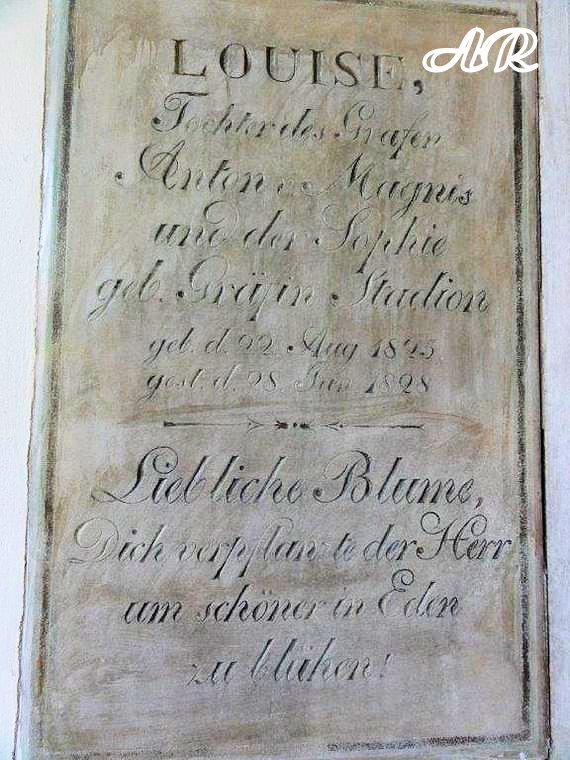 AR
LOUISE,
Tochter des Grafen
Anton v. Magnis
und der Sophie
geb. Gräfin Stadion
geb. d. 22. Aug 1825
gest. d. 28. Jun. 1828
Liebliche Blume,
Dich verpflanzte der Herr
um schöner in Eden
zu blühen!